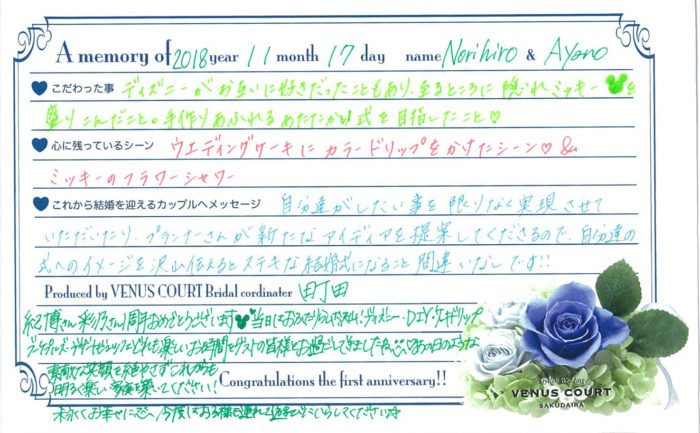 A memory of 2018 year 11 month 17 day name Norihiro & Ayano
こだわった事 ディズニーがお互いに好きだったこともあり、至るところに隠れミッキーを
盛りこんだこと。手作りあふれるあたたかい式を目指したこと♡
心に残っているシーン ウエディングケーキにカラードリップをかけたシーン♡&
ミッキーのフラワーシャワー
これから結婚を迎えるカップルへメッセージ 自分達がしたい事を限りなく実現させて
いただいたり、プランナーさんが新たなアイディアを提案してくださるので、自分達の
式へのイメージを沢山伝えるとステキな結婚式になること間違いなしです!!
Produced by VENUS COURT Bridal cordinater 町田
紀博さん彩乃さん1周年おめでとうございます 当日に ディズニー・DIY・ケーキドリップ
楽しいお時間をゲストの皆様とお過ごし あの日のような
素敵な笑顔を絶やさずこれからも
明るく楽しい家庭を築いてください!
Congratulations the first anniversary!!
末永くお幸せに 今度は お子様も連れて遊びにいらしてください☆
Splendid Wedding
VENUS COURT
SAKUDAIRA